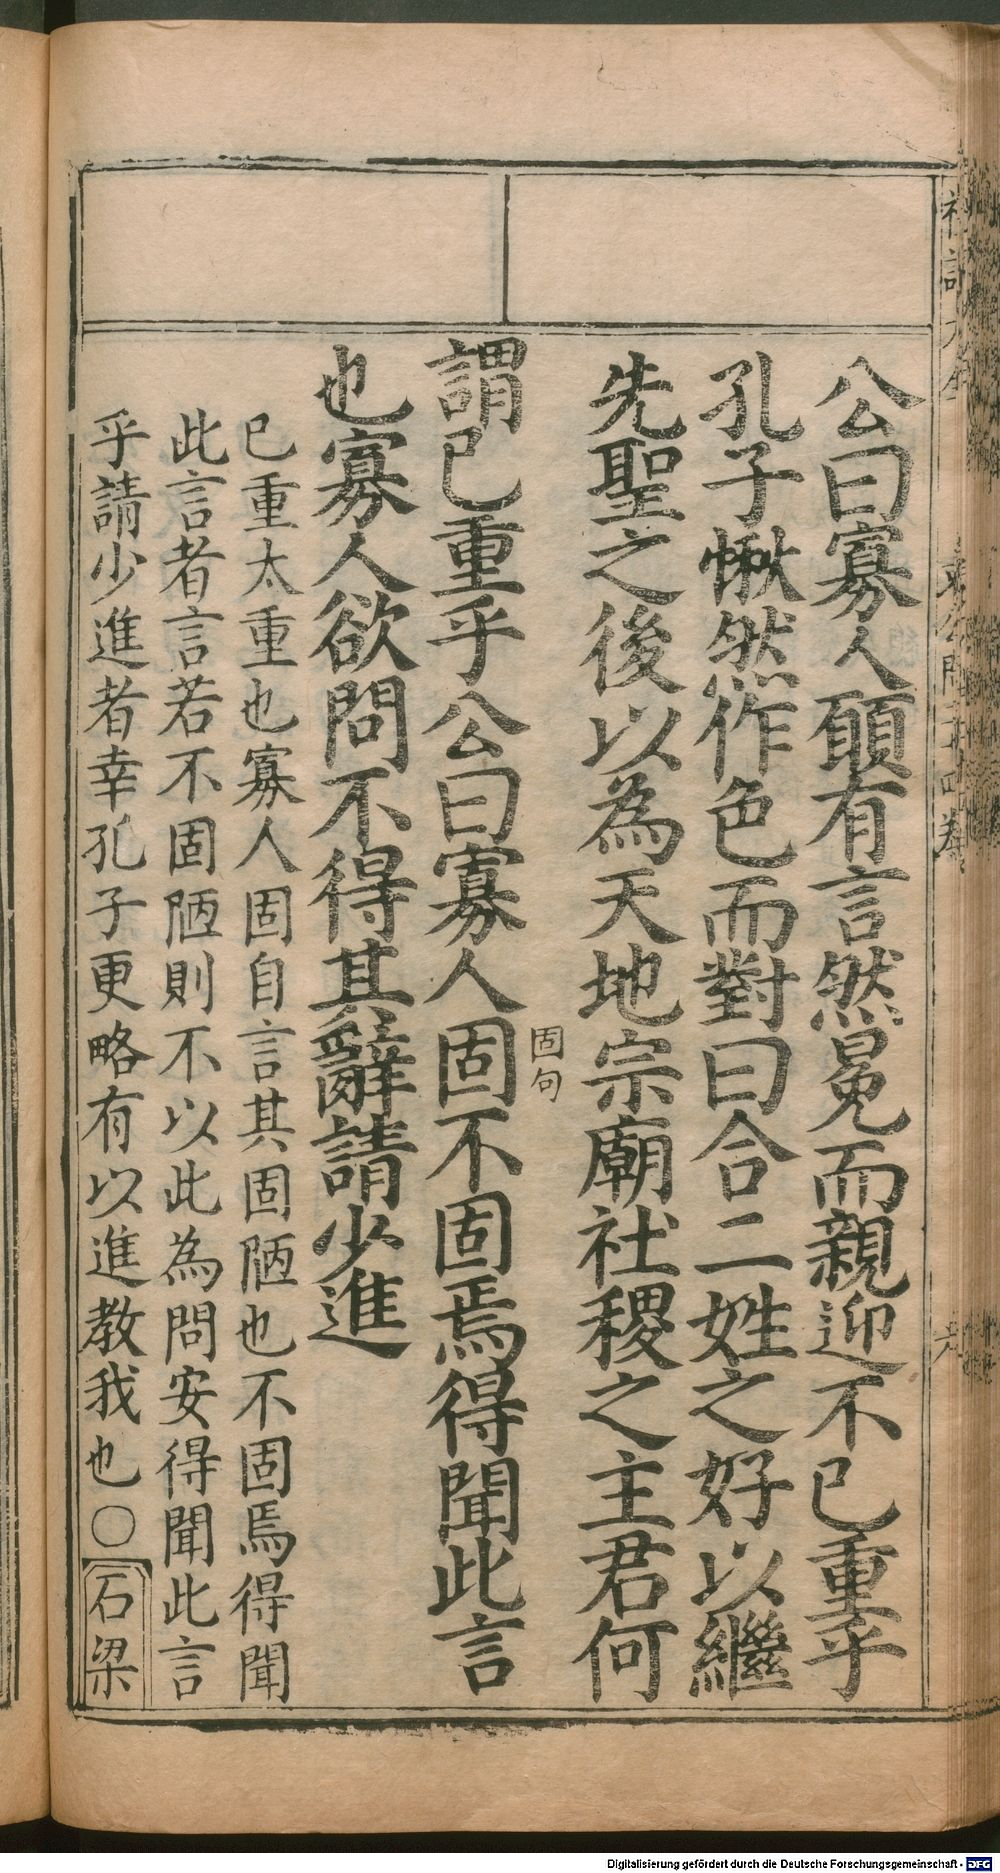 公曰寡人願有言然冕而親迎不已重乎
孔子愀然作色而對曰合二姓之好以繼
先聖之後以為天地宗廟社稷之主君何
固句
謂已重乎公曰寡人固不固焉得聞此言
也寡人欲問不得其辭請少進
已重太重也寡人固自言其固陋也不固焉得聞
此言者言若不固陋則不以此為問安得聞此言
乎請少進者幸孔子更略有以進教我也○石梁
Digitalisierung gefördert durch die Deutsche Forschungsgemeinschaft - DFG